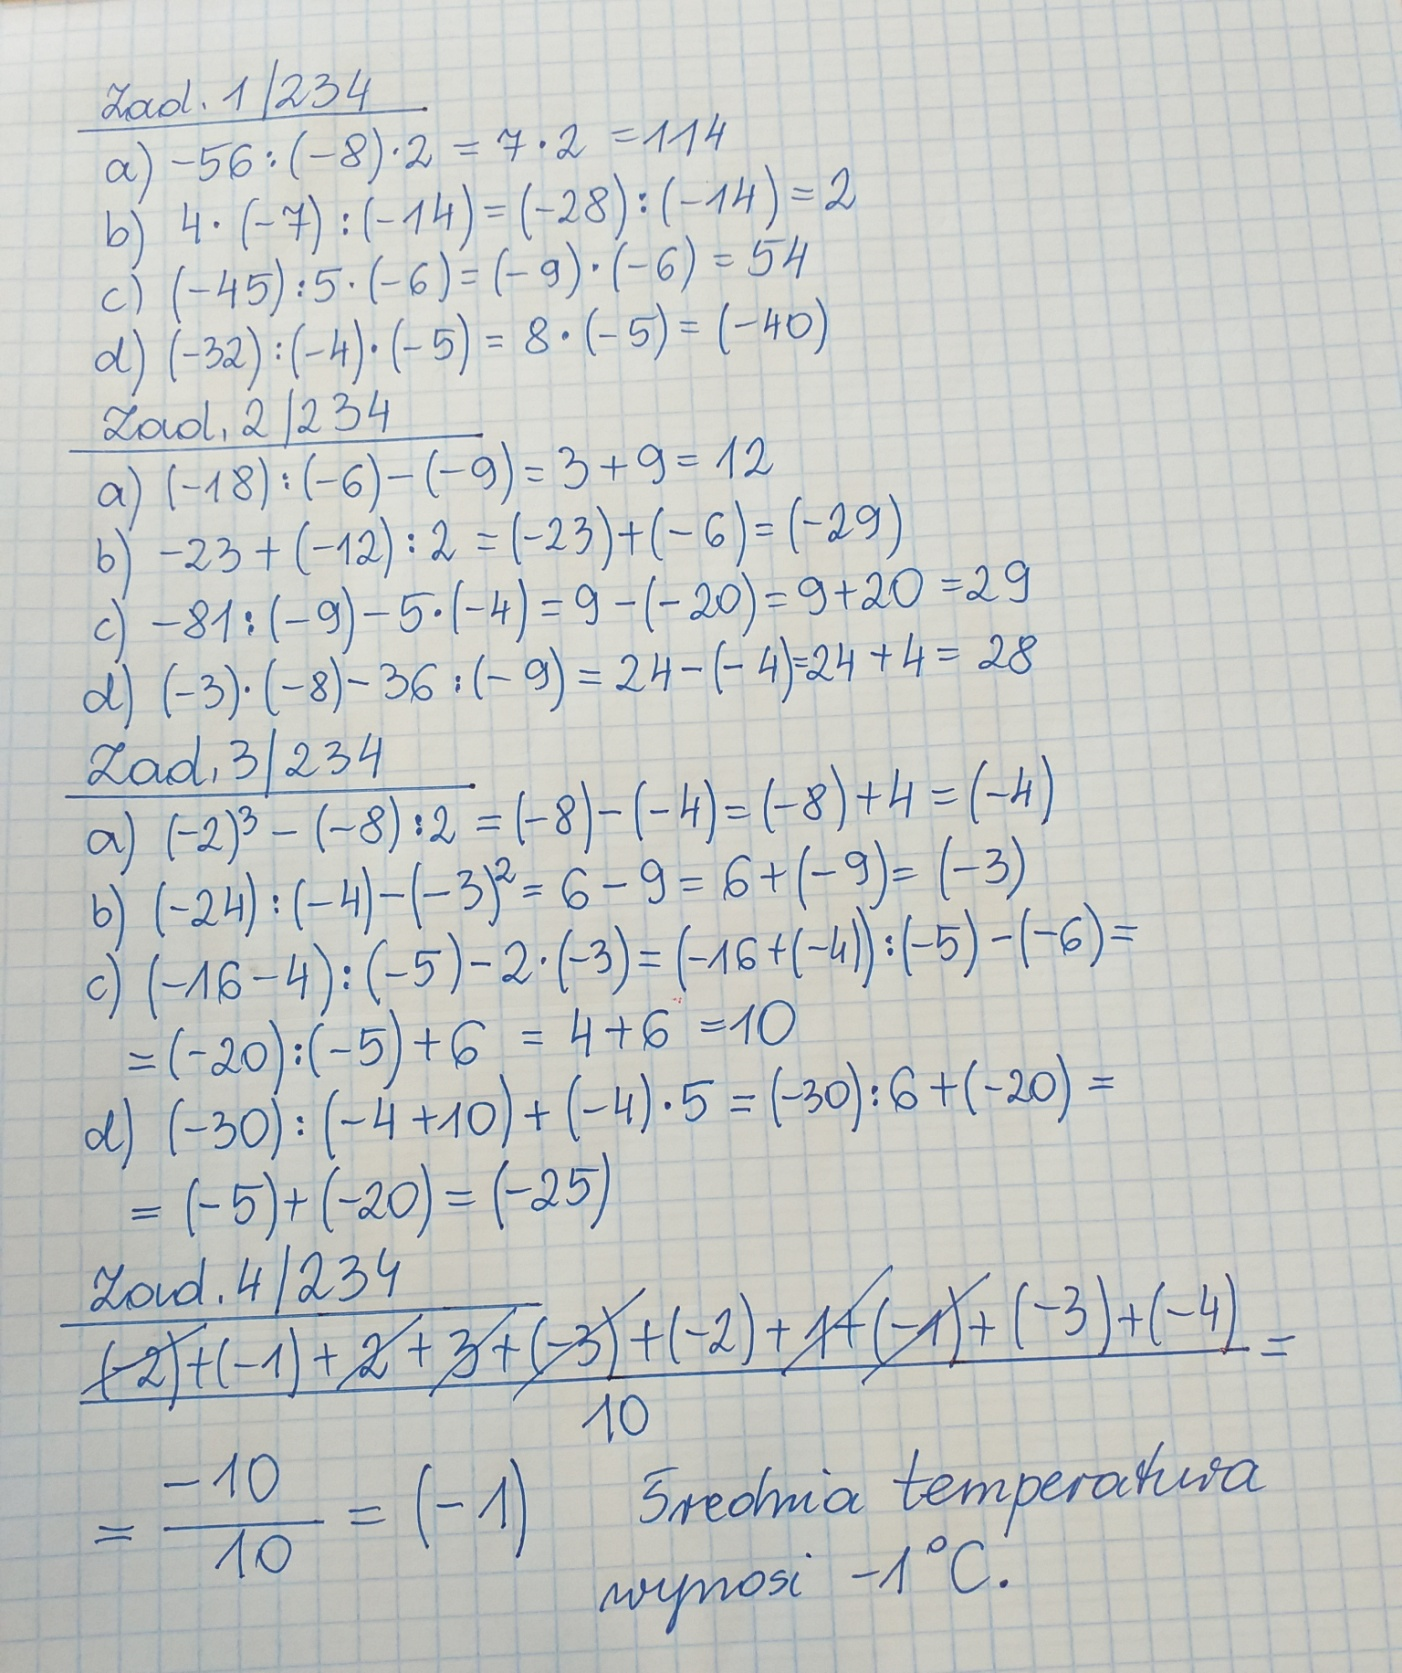 Zad. 1/234
a) -56:(-8)·2 = 7·2 = 114
b) 4·(-7):(-14) = (-28):(-14) = 2
c) (-45):5·(-6) = (-9)·(-6) = 54
d) (-32):(-4)·(-5) = 8·(-5) = (-40)
Zad. 2/234
a) (-18):(-6)-(-9) = 3+9 = 12
b) -23+(-12):2 = (-23)+(-6) = (-29)
c) -81:(-9)-5·(-4) = 9-(-20) = 9+20 = 29
d) (-3)·(-8)-36:(-9) = 24-(-4) = 24+4 = 28
Zad. 3/234
a) (-2)³-(-8):2 = (-8)-(-4) = (-8)+4 = (-4)
b) (-24):(-4)-(-3)² = 6-9 = 6+(-9) = (-3)
c) (-16-4):(-5)-2·(-3) = (-16+(-4)):(-5)-(-6) =
= (-20):(-5)+6 = 4+6 = 10
d) (-30):(-4+10)+(-4)·5 = (-30):6+(-20) =
= (-5)+(-20) = (-25)
Zad. 4/234
(-2)+(-1)+2+3+(-3)+(-2)+1+(-1)+(-3)+(-4) =
10
= -10/10 = (-1) Średnia temperatura
wynosi -1°C.